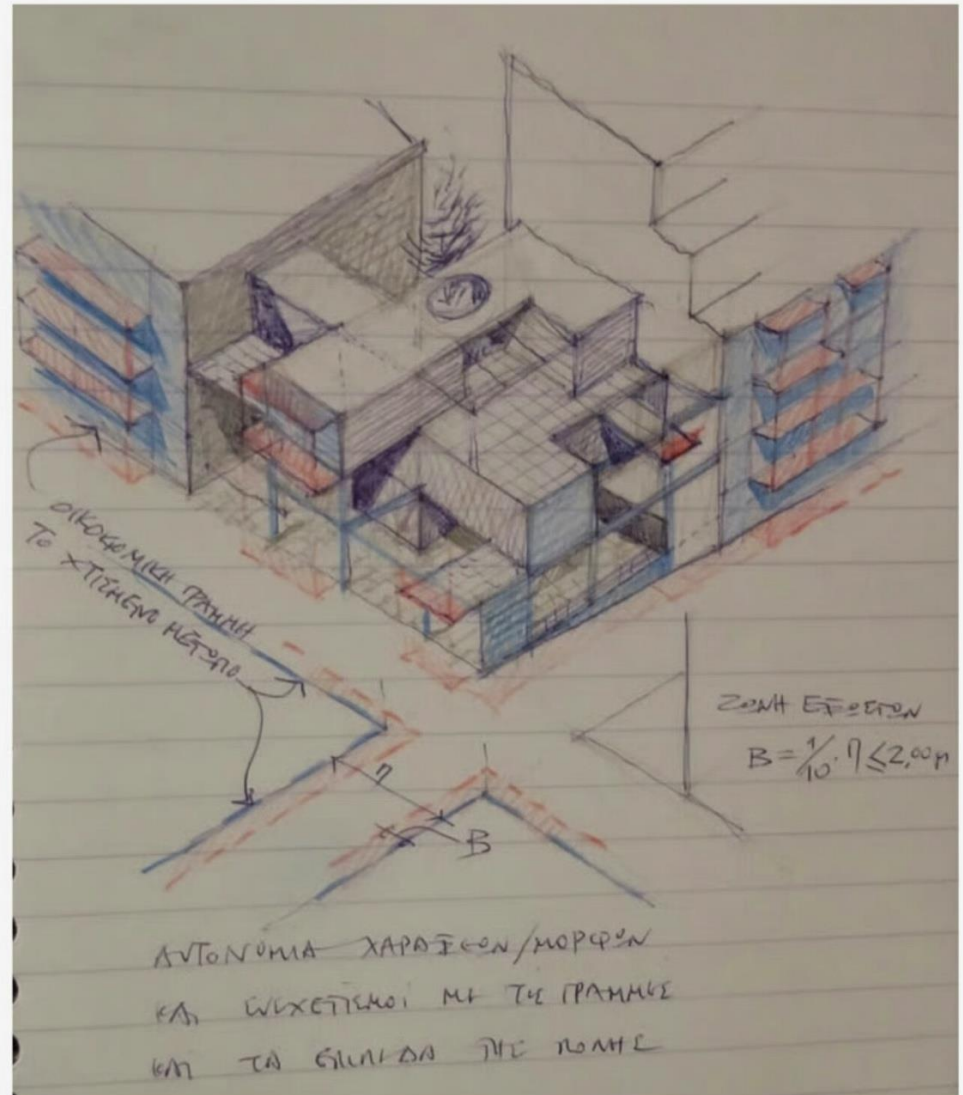 ΟΙΚΟΔΟΜΙΚΗ ΓΡΑΜΜΗ
ΤΟ ΧΤΙΣΜΕΝΟ ΜΕΤΩΠΟ
ΖΩΝΗ ΕΞΩΣΤΩΝ
Β = 1/10 · η ≤ 2,00 μ
η
Β
ΑΥΤΟΝΟΜΙΑ ΧΑΡΑΞΕΩΝ/ΜΟΡΦΩΝ
ΚΑΙ ΣΥΣΧΕΤΙΣΜΟΙ ΜΕ ΤΙΣ ΓΡΑΜΜΕΣ
ΚΑΙ ΤΑ ΕΠΙΠΕΔΑ ΤΗΣ ΠΟΛΗΣ